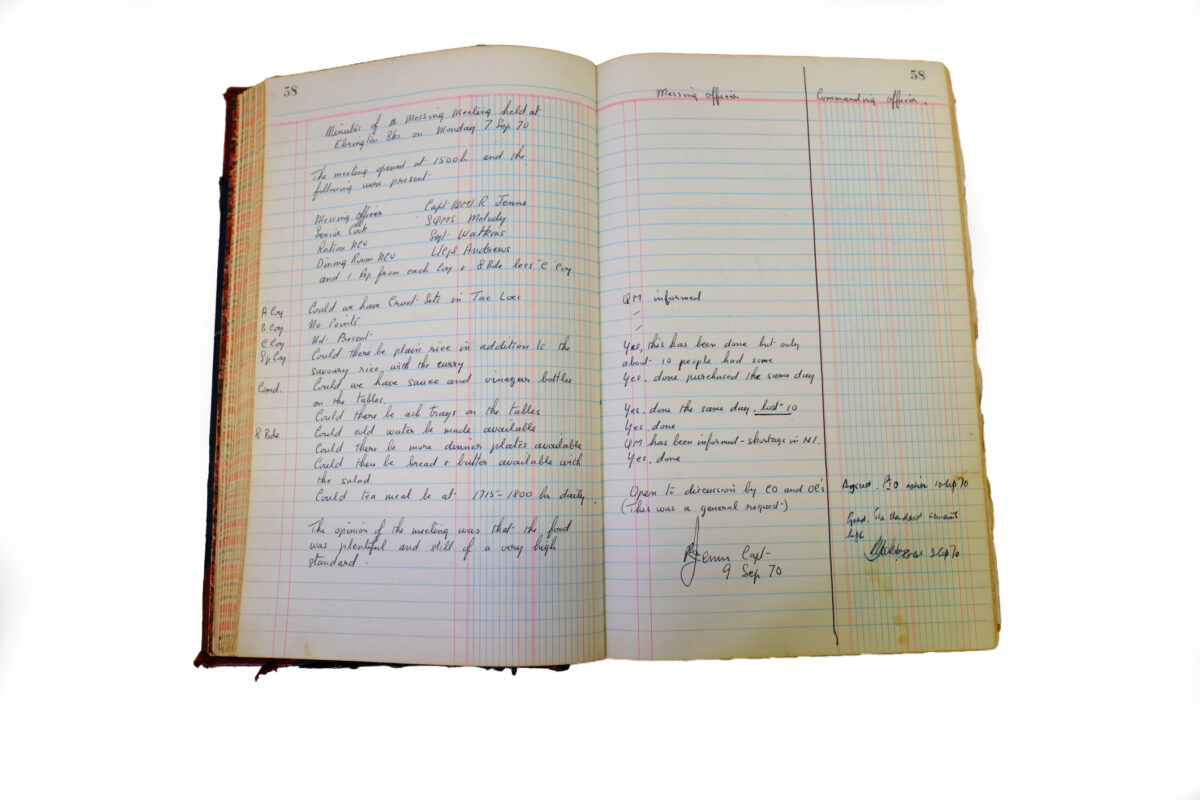 58
Minutes of a Messing Meeting held at
Ebrington Bks on Monday 7 Sep 70
The meeting opened at 1500h and the
following were present.
Messing Officer Capt (QM) R
Senior Cook SQMS Melody
Ration NCO Sgt Watkins
Dining Room NCO L/Cpl Andrews
and 1 Rep from each Coy & 8 Bde less C Coy.
A Coy Could we have Cruet Sets in
B Coy No Points
C Coy Not Present
Sp Coy Could there be plain rice in addition to the
savoury rice with the curry
Comd. Could we have sauce and vinegar bottles
on the tables.
Could there be ash trays on the tables
8 Bde Could cold water be made available
Could there be more dinner plates available
Could there be bread & butter available with
the salad
Could tea meal be at 1715-1800 hr daily.
The opinion of the meeting was that the food
was plentiful and still of a very high
standard.
58
Messing Officer
Commanding Officer.
QM informed
Yes, this has been done but only
about 10 people had some
Yes, done purchased the same day
Yes, done the same day, lost 10
Yes done
QM has been informed - shortage in NI.
Yes, done
Open to discussion by CO and OC's
(This was a general request)
Capt
9 Sep 70
Agreed. 10 Sep 70
Good. The standard
high
Sep 70